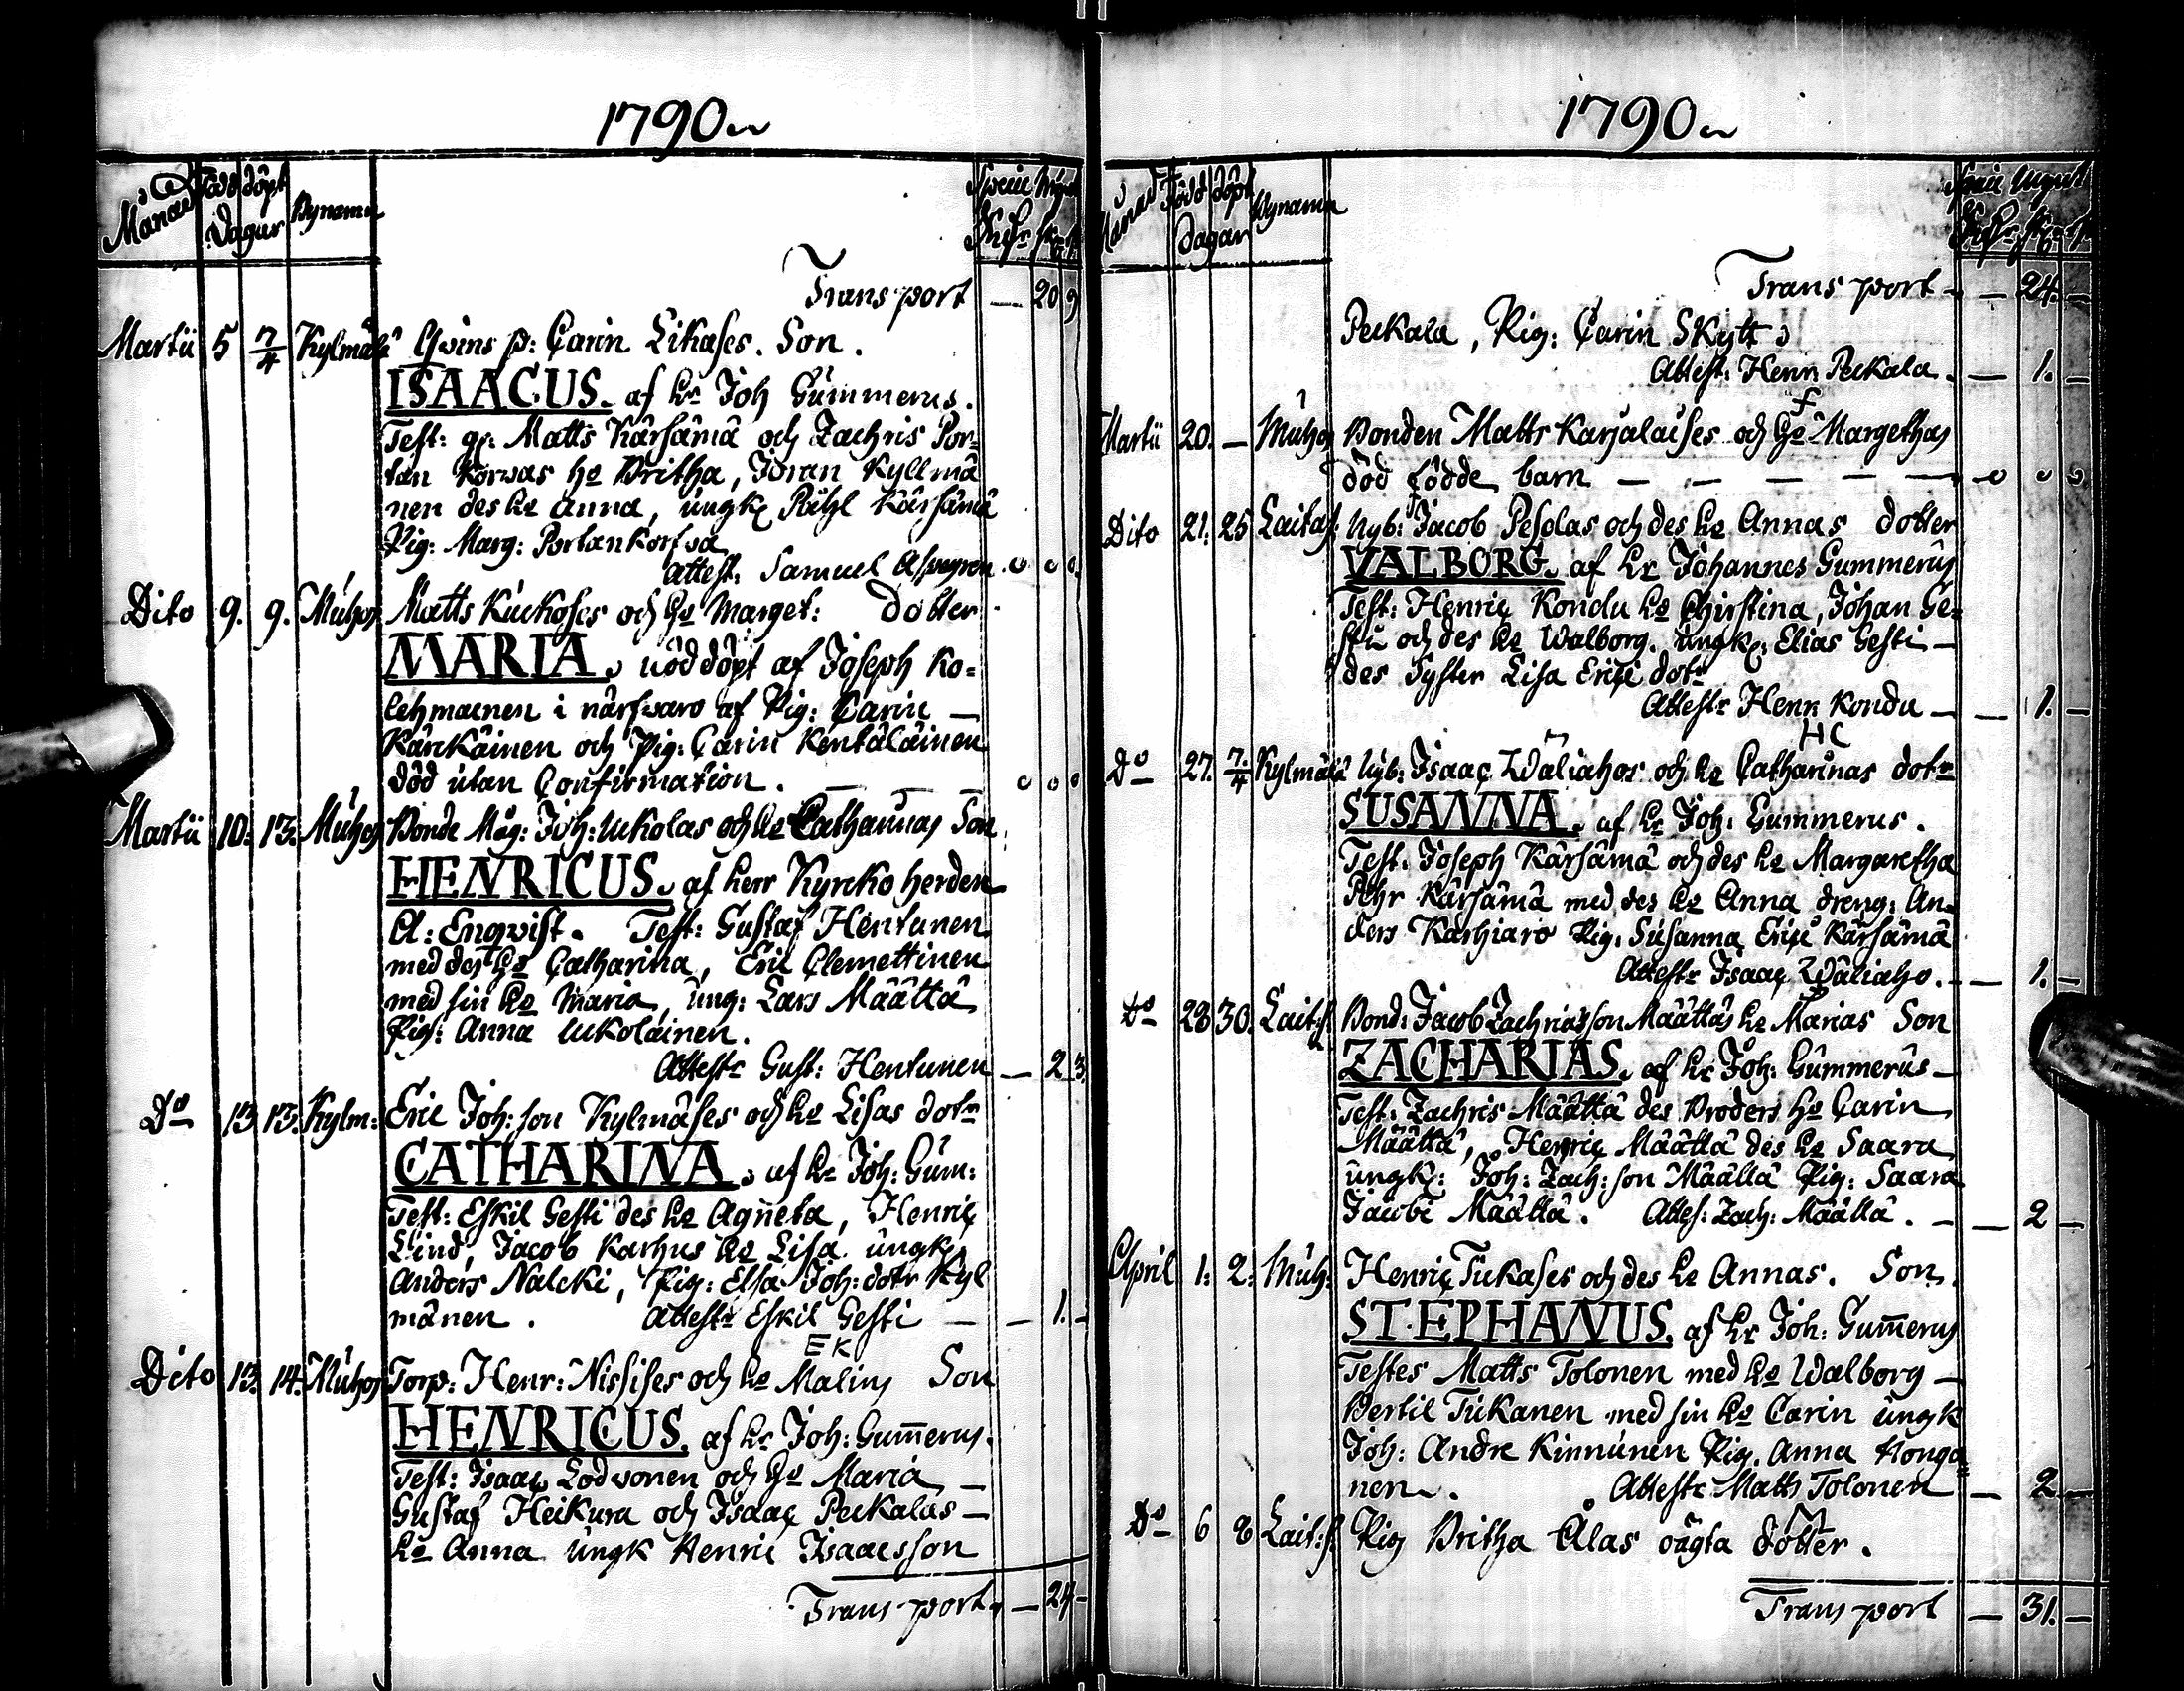 1790
Månad Född döpt Bynamn
dagar
Transport — 20 9
Martii 5 7/4 Kylmälä Enkens p: Carin Likases. Son.
ISAACUS. af hr Joh Gummerus.
Test: gf: Matts Kärsämä och Zachris Por-
tan Korwas ho Britha, Jöran Kyllmä
nen des ho Anna, ungk Påhl Kärsämä
Pig: Marg: Portankorfwa
Attest: Samuel 0 0 0
Dito 9. 9. Muhos Matts Kuckoses och ho Marget: dotter
MARIA. nöd döpt af Joseph Ko-
lehmainen i närfwaro af Pig: Carin —
Kärckäinen och Pig: Carin Kentäläinen
död utan Confirmation. 0 0 0
Martii 10. 13. Muhos Bonde Måg: Joh: Uckolas och ho Catharinas Son
HENRICUS. af herr Kyrckoherden
A: Enqvist. Test: Gustaf Hentunen
med des ho Catharina, Eric Clemettinen
med sin ho Maria, ung: Lars Määttä
Pig: Anna Uckolainen.
Attestr Gust: Hentunen — 2 3.
Do 13 13. Kylm: Eric Joh: son Kylmäses och ho Lisas dotr
CATHARINA. af hr Joh: Gum:
Test: Eskil Gesti des ho Agneta, Henric
Lind, Jacob Karhus ho Lisa ungk
Anders Nalcki, Pig: Elsa Joh: dotr Kyl
mänen. Attestr Eskil Gesti — — 1. —
EK
Dito 13. 14. Muhos Torp: Henr: Nissises och ho Malins Son
HENRICUS. af hr Joh: Gum̄erus.
Test: Isaac Lodvonen och ho Maria —
Gustaf Heikura och Isaac Peckalas —
ho Anna ungk Henric Isaacsson
Transport — 24 —
1790
Månad Född döpt Bynamn
dagar
Transport — — 24. —
Peckala, Pig: Carin Skytt
Attest: Henr. Peckala. — — 1. —
f
Martii 20. — Muhos Bonden Matts Karjalaises och ho Margethas
död födde barn — — — — — 0 0 0
Dito 21. 25 Laitas. Nyb: Jacob Pesolas och des ho Annas dotter
VALBORG. af hr Johannes Gummerus
Test: Henric Kondu ho Christina, Johan Ge-
sti och des ho Walborg. ungk: Elias Gesti —
des Syster Lisa Eric dotr
Attestr Henr. Kondu — — 1. —
HC
Do 27. 7/4 Kylmälä Nyb: Isaac Wäliahos och ho Catharinas dotr
SUSANNA. af hr Joh: Gummerus.
Test: Joseph Kärsämä och des ho Margaretha
Pehr Kärsämä med des ho Anna dreng: An-
ders Karhiaro Pig: Susanna Eric Kärsämä
Attestr Isaac Wäliaho. — — 1. —
Do 28 30. Lait:s. Bond: Jacob Zachriasson Määttäs ho Marias Son
ZACHARIAS. af hr Joh: Gummerus —
Test: Zachris Määttä des Broders ho Carin
Määttä, Henric Määttä des ho Saara
ungk: Joh: Zach: son Määttä Pig: Saara
Jacobi Määttä. Attes: Zach: Määttä. — — 2 —
April 1: 2: Muh: Henric Tukases och des ho Annas. Son.
STEPHANUS. af hr Joh: Gum̄erus
Testes Matts Tolonen med ho Walborg —
Bertil Tukanen med sin ho Carin ungk
Joh: Andre Kinnunen Pig. Anna Honga
nen. Attestr Matts Tolonen — 2 —
Do 6 8 Lait:s. Pig Britha Ålas oägta dotter.
Transport — 31. —